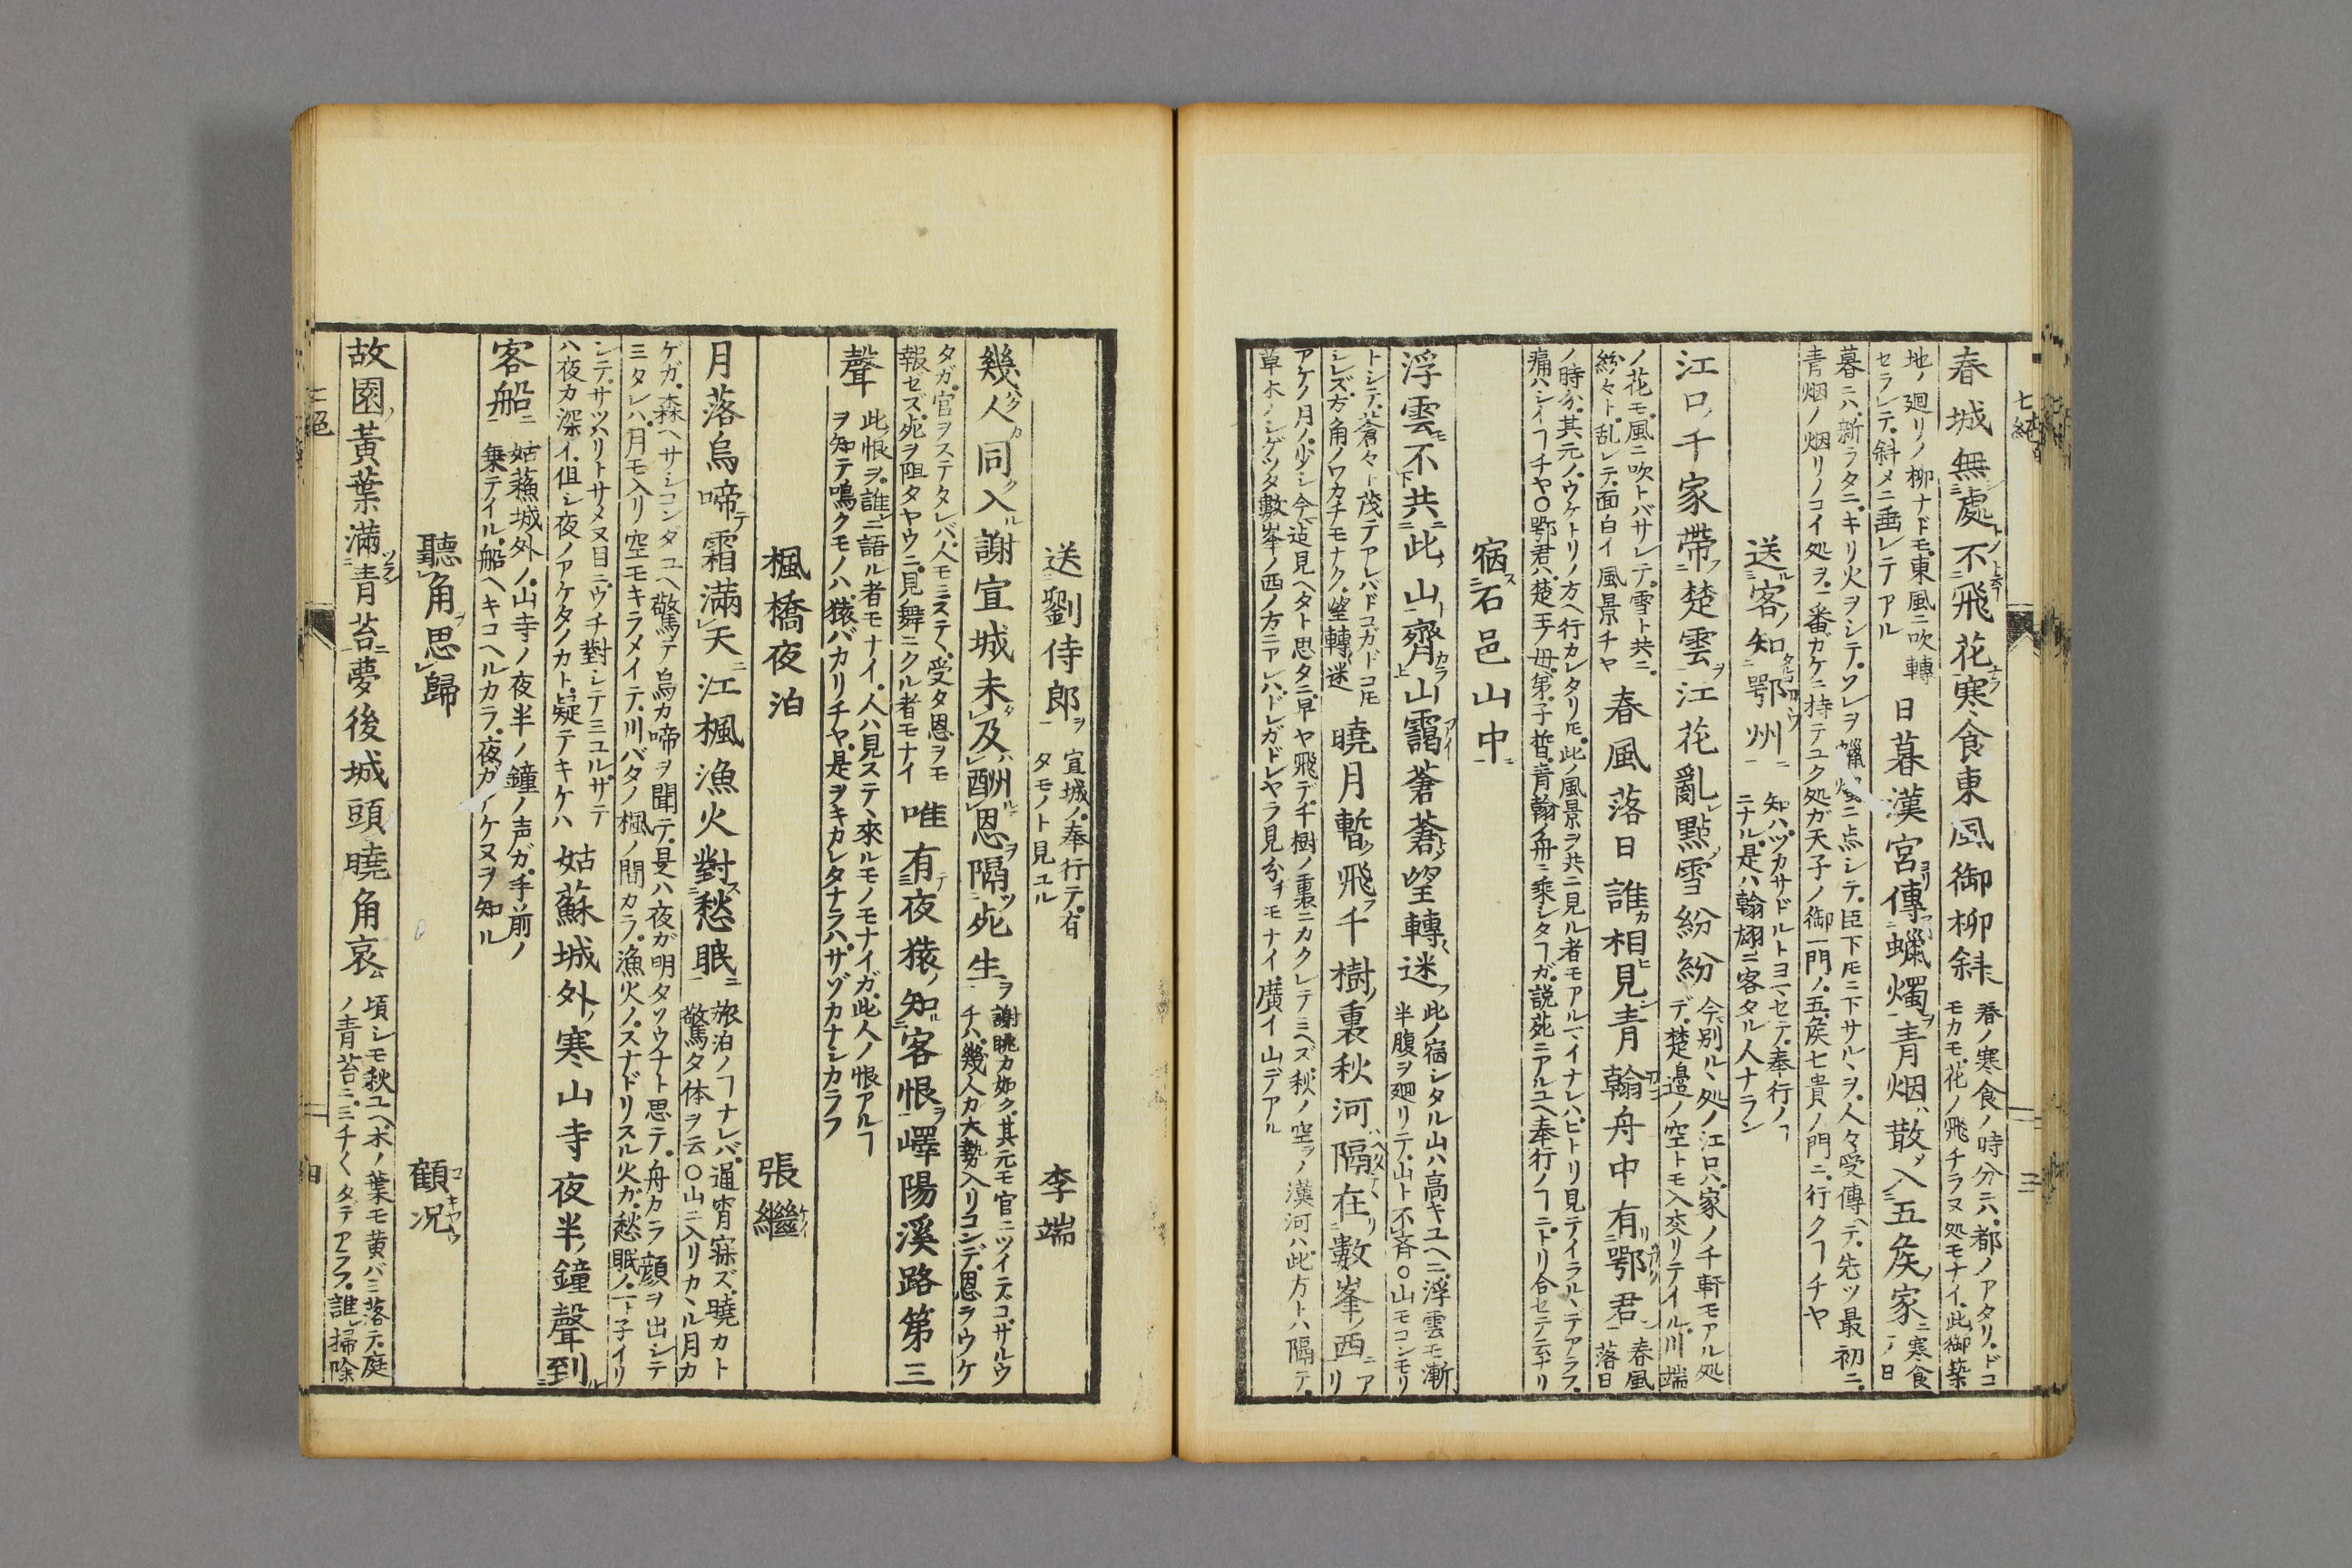 七絶
春城無處不飛花寒食東風御柳斜
春ノ寒食ノ時分ニハ都ノアタリドコ
モカモ花ノ飛チラヌ処モナイ此御築
地ノ廻リノ柳ナドモ東風ニ吹轉
セラレテ斜メニ垂レテアル
日暮漢宮傳蠟燭青烟散入五侯家
寒食
ノ日
暮ニハ新ラタニキリ火ヲシテソレヲ蠟燭ニ点シテ臣下𪜈ニ下サルヽヲ人々受傳ヘテ先ツ最初ニ
青烟ノ烟リノコイ処ヲ一番ガケニ持テユク処ガ天子ノ御一門ノ五侯七貴ノ門ニ行クヿチヤ
送客知鄂州
知ハツカサドルトヨマセテ奉行ノヿ
ニナル是ハ翰翃ガ客タル人ナラン
江口千家帶楚雲江花亂點雪紛紛
今別ルヽ処ノ江口ハ家ノ千軒モアル処
デ楚邉ノ空トモ入交リテイル川端
ノ花モ風ニ吹トバサレテ雪ト共ニ
紛々ト乱レテ面白イ風景チヤ
春風落日誰相見青翰舟中有鄂君
春風
落日
ノ時分其元ノウケトリノ方ヘ行カレタリ𪜈此ノ風景ヲ共ニ見ル者モアルマイナレハヒトリ見テイラルヽデアラフ
痛ハシイヿチヤ〇鄂君ハ楚王ノ母弟子晳青翰ノ舟ニ乗シタヿガ説苑ニアルユヘ奉行ノヿニトリ合セテ云ナリ
宿石邑山中
浮雲不共此山齊山靄蒼蒼望轉迷
此ノ宿シタル山ハ高キユヘニ浮雲モ漸
半腹ヲ廻リテ山ト不斉〇山モコンモリ
トシテ蒼々ト茂テアレバドコガドコモ
シレズ方角ノワカチモナク望轉迷
曉月暫飛千樹裏秋河隔在數峯西
ア
リ
アケノ月ノ少シ今迠見ヘタト思タニ早ヤ飛デ千樹ノ裏ニカクレテミヘズ秋ノ空ラノ漢河ハ此方トハ隔テ
草木ノシゲツタ數峯ノ西ノ方ニアレバドレガドレヤラ見分ヲモナイ廣イ山デアル
三
送劉侍郎
宣城ノ奉行テ有
タモノト見ユル
李端
幾人同入謝宣城未及酬恩隔死生
謝眺カ如ク其元モ官ニツイテゴザルウ
チハ幾人カ大勢入リコンデ恩ラウケ
タガ官ヲステタレバ人モミステヽ受タ恩ヲモ
報ゼズ死ヲ阻タヤウニ見ノ舞ニクル者モナイ
唯有夜猿知客恨嶧陽溪路第三
聲
此恨ヲ誰ニ語ル者モナイ人ハ見ステヽ來ルモノモナイガ此人ノ恨アルヿ
ヲ知テ鳴クモノハ猿バカリチヤ是ヲキカレタナラハサゾカナシカラフ
楓橋夜泊
張繼
月落烏啼霜滿天江楓漁火對愁眠
旅泊ノヿナレバ逼宵寐ズ曉カト
驚タ体ヲ云〇山ニ入リカヽル月カ
ゲガ森ヘサシコンダユヘ驚テ烏カ啼ヲ聞テ是ハ夜ガ明タソウナト思テ舟カラ顔ヲ出シテ
ミタレハ月モ入リ空モキラメイテ川バタノ楓ノ間カラ漁火ノスナドリスル火ガ愁眠ノ子イリ
シテサツハリトサメヌ目ニウチ對シテミユルサテ
ハ夜カ深イ但シ夜ノアケタノカト疑テキケハ
姑蘇城外寒山寺夜半鐘聲到
客船
姑蘓城外ノ山寺ノ夜半ノ鐘ノ声ガ手前ノ
乗テイル船ヘキコヘルカラ夜ガアケヌヲ知ル
聽角思歸
顧况
故園黃葉滿青苔夢後城頭曉角哀
頃シモ秋ユヘ木ノ葉モ黄バミ落テ庭
ノ青苔ニミチ〱タテアラフ誰レ掃除